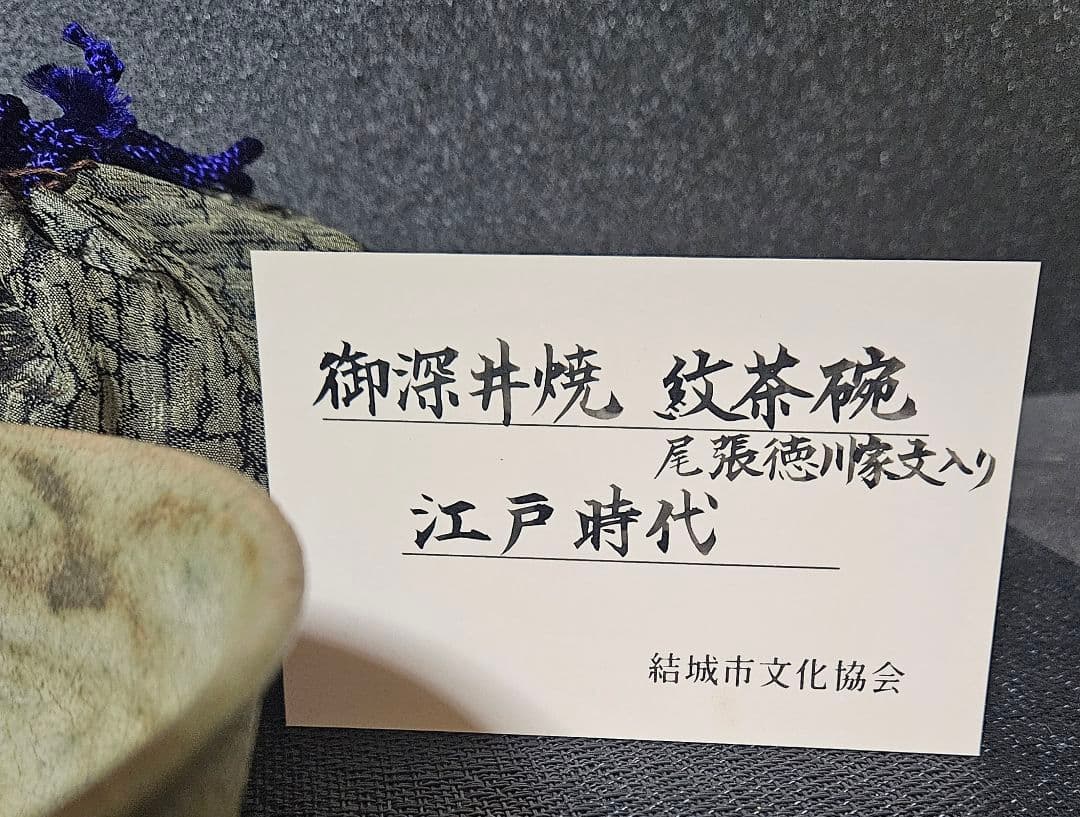 御深井焼 紋茶碗
尾張徳川家文入り
江戸時代
結城市文化協会